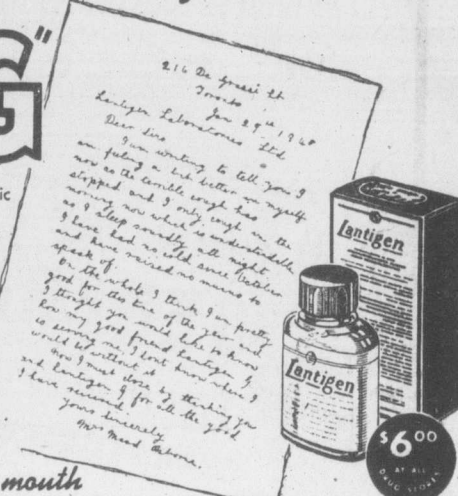 "
G
ic
216 De Grassi St
Toronto
Jan 29th, 1940
Lantigen Laboratories Ltd
Dear Sirs
I am writing to tell you I
am feeling a bit better in myself
now as the terrible cough has
stopped and I only cough in the
morning now which is understandable
as I sleep soundly all night
I have had no cold since
and have no to
speak of.
On the whole I think I am pretty
good for this time of the year and
I thought you would like to know
how my good friend Lantigen
is serving me, I dont know where I
would be without it
Now I must close by thanking you
and Lantigen for all the good
I have received
Yours Sincerely
Mrs
Lantigen
Lantigen
$6.00
AT ALL
DRUG STORES
mouth